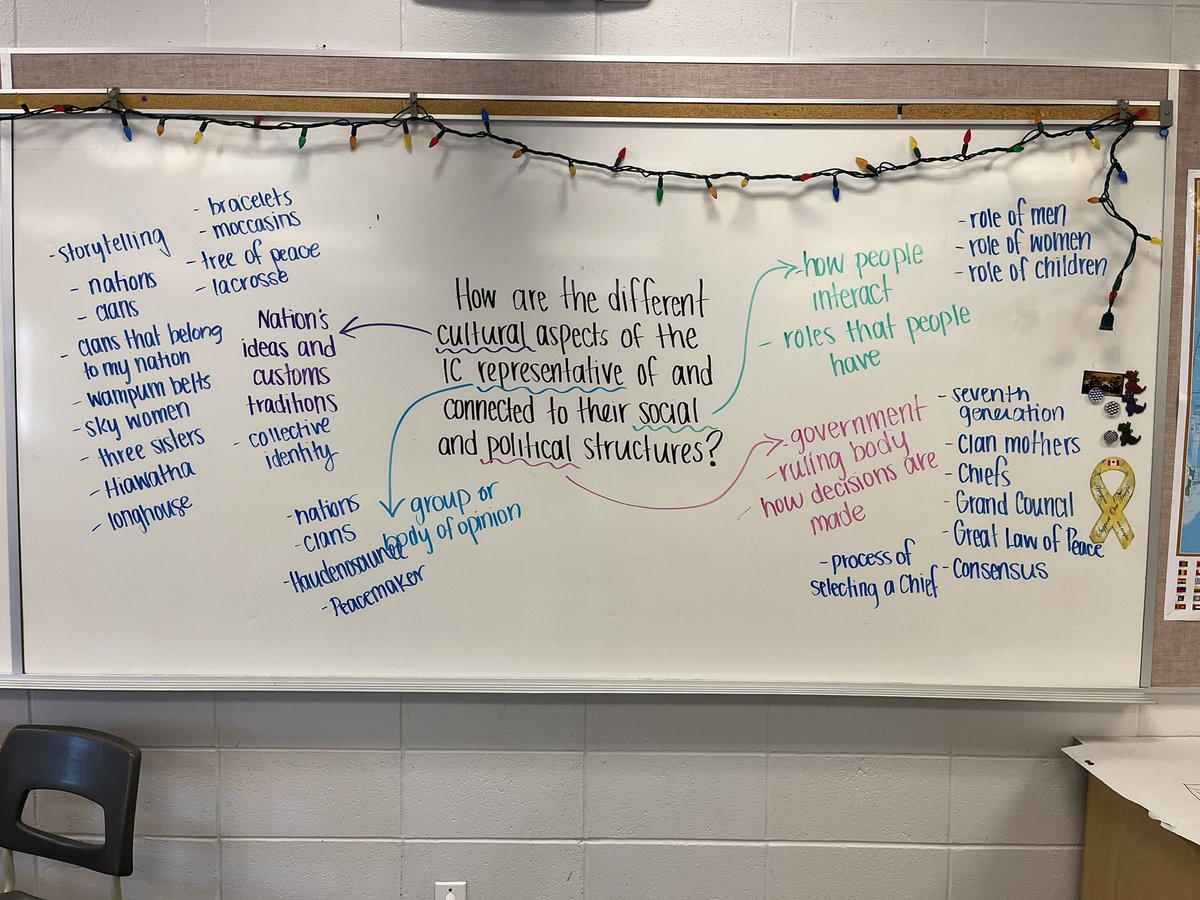 How are the different
cultural aspects of the
IC representative of and
connected to their social
and political structures?
- bracelets
- moccasins
- tree of peace
- lacrosse
- storytelling
- nations
- clans
- clans that belong
to my nation
- wampum belts
- sky women
- three sisters
- Hiawatha
- longhouse
Nation's
ideas and
customs
traditions
- collective
identity
group or
body of opinion
- nations
- clans
- Haudenosaunee
- Peacemaker
- how people
interact
- roles that people
have
- role of men
- role of women
- role of children
- government
- ruling body
- how decisions are
made
- process of
selecting a Chief
- seventh
generation
- clan mothers
- Chiefs
- Grand Council
- Great Law of Peace
- Consensus